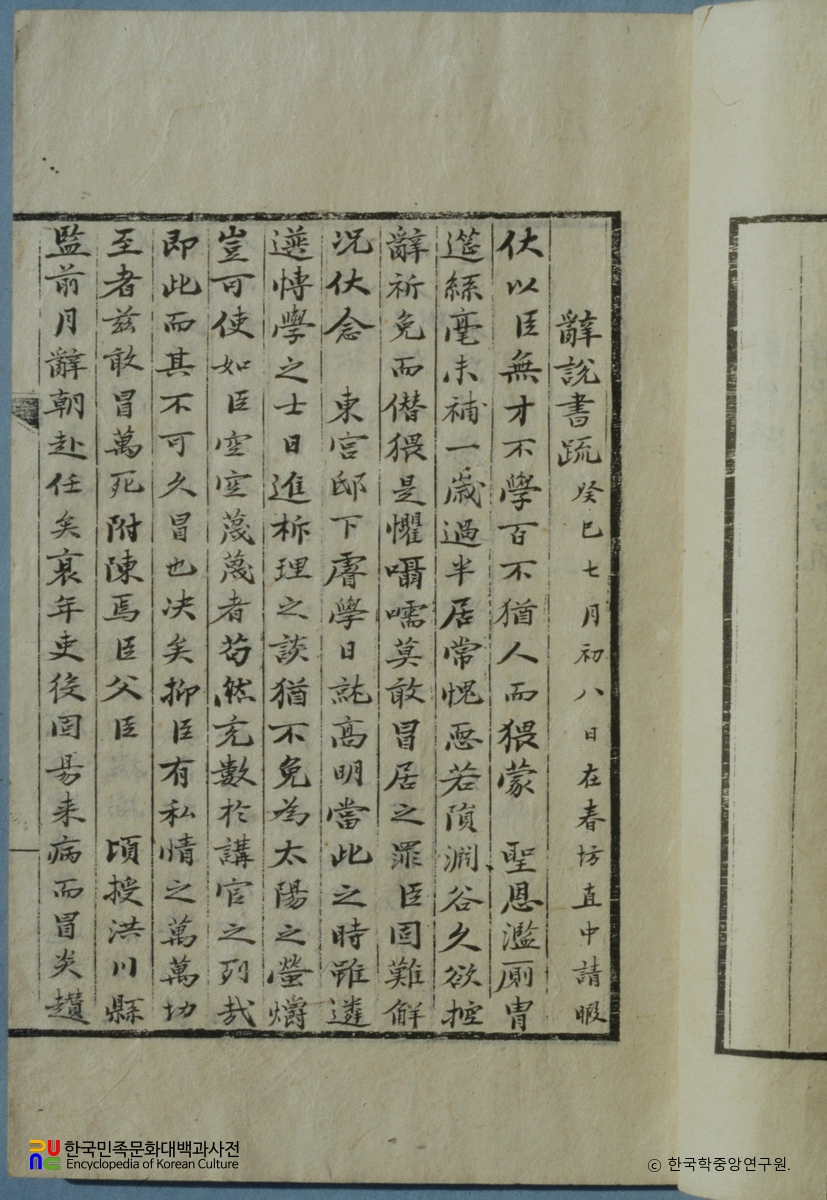 辭說書疏 癸巳七月初八日在春坊直中請暇
伏以臣無才不學百不猶人而猥蒙 聖恩濫厠胄
筵絲毫未補一歲過半居常愧恧若隕淵谷久欲控
辭祈免而僭猥是懼囁嚅莫敢冒居之罪臣固難觧
况伏念 東宮邸下睿學日就高明當此之時雖遴
選博學之士日進析理之談猶不免為太陽之螢爝
豈可使如臣空空蔑蔑者苟然充數於講官之列哉
即此而其不可久冒也决矣抑臣有私情之萬萬切
至者玆敢冒萬死附陳焉臣父臣 頃授洪川縣
監前月辭朝赴任矣衰年吏役固昜来病而冒炎趲
한국민족문화대백과사전
Encyclopedia of Korean Culture
© 한국학중앙연구원.